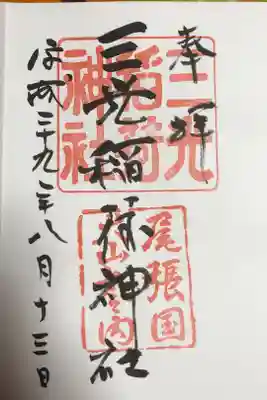 奉拝
三光稲荷神社
三光稲荷神社
尾張国
犬山之内
平成二十九年八月十三日